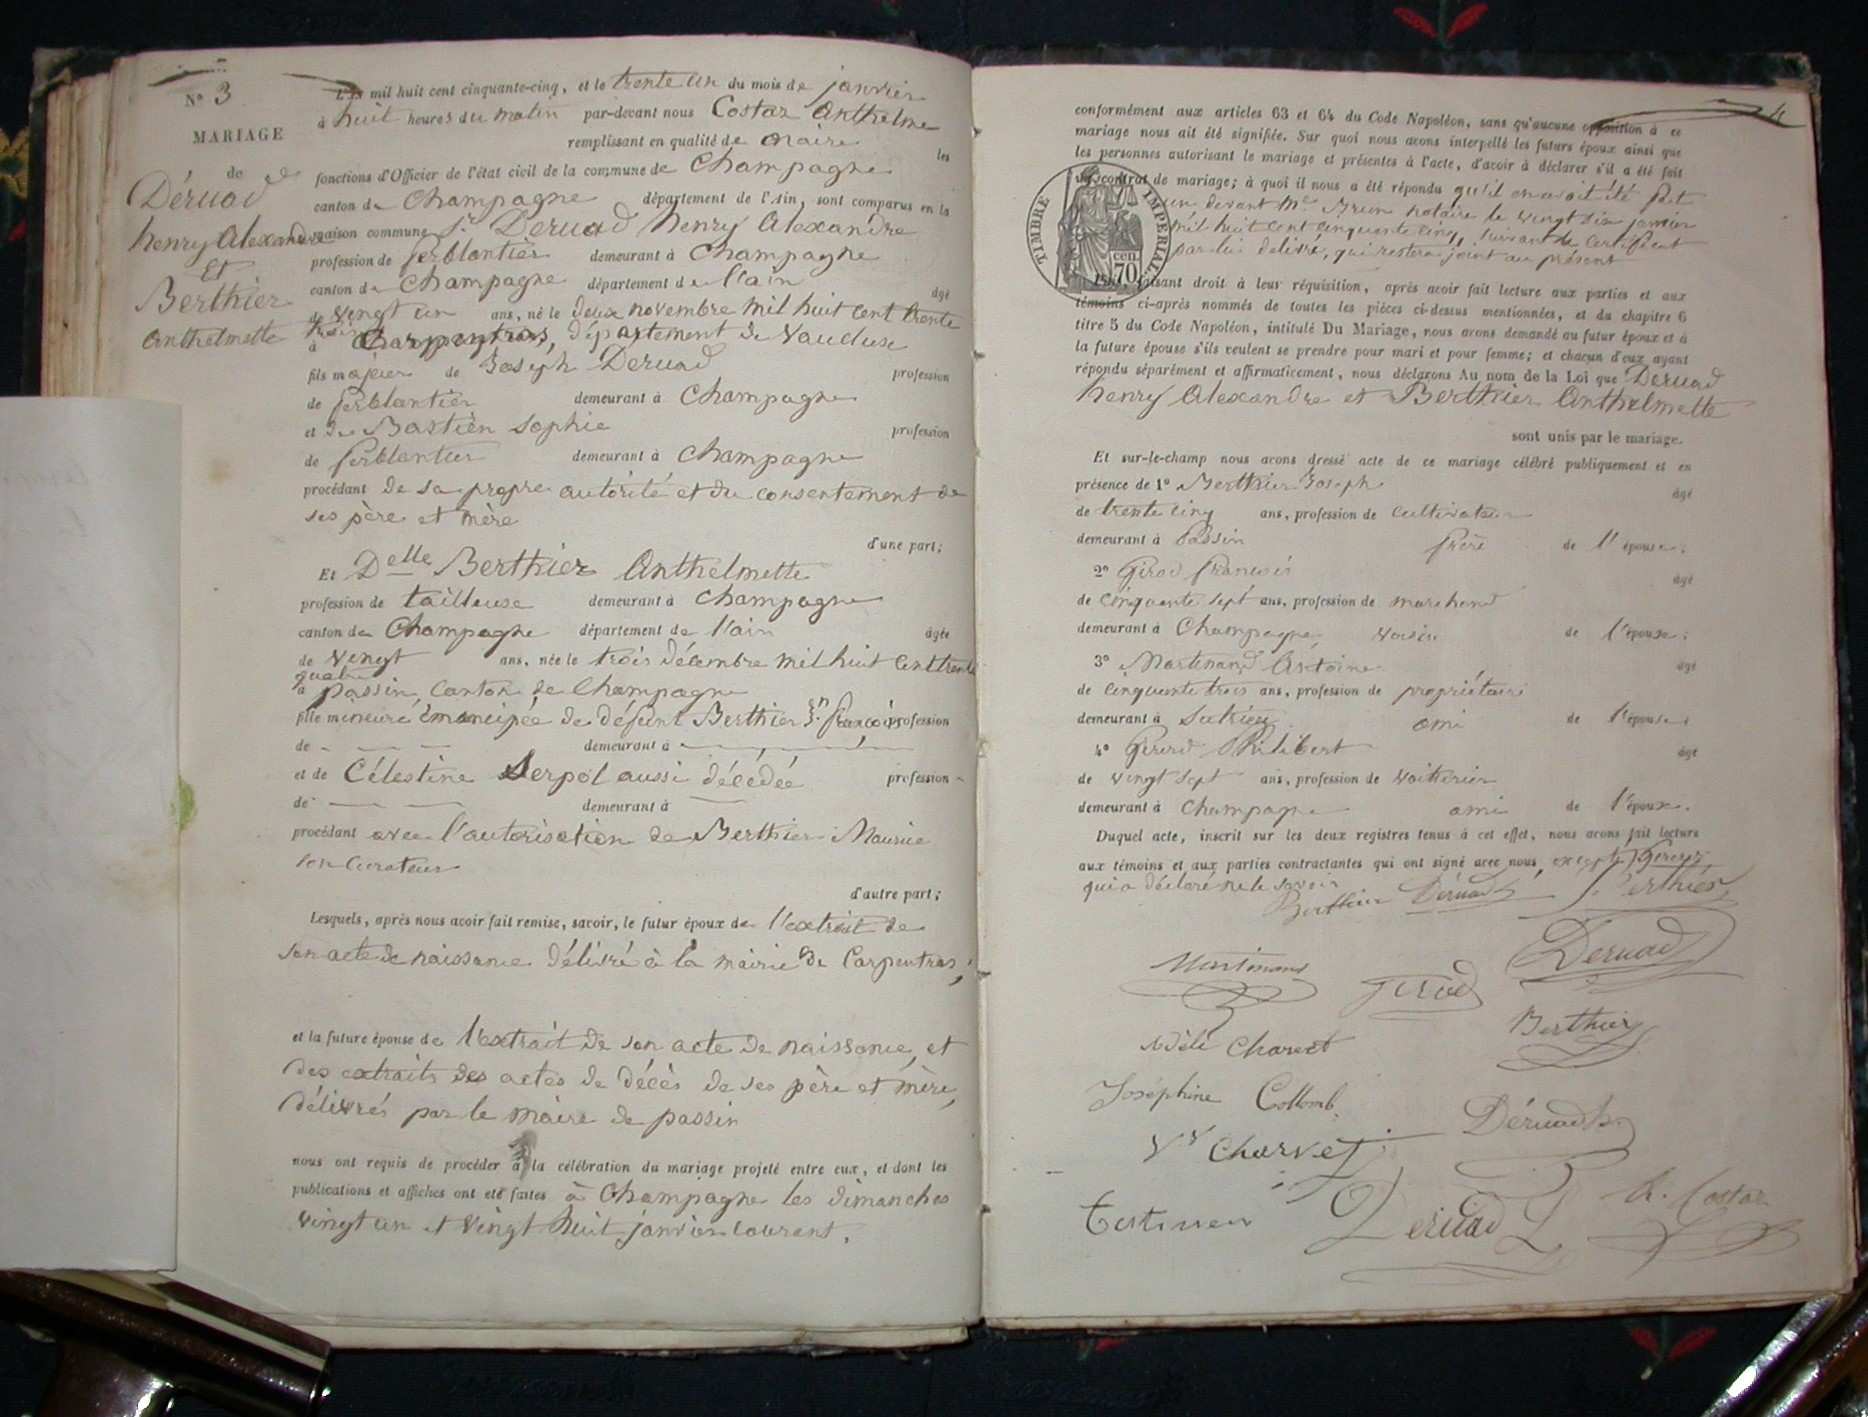 N° 3
MARIAGE
de
Déruad
henry Alexandre
Et
Berthier
Anthelmette
L'An mil huit cent cinquante-cinq, et le trente un du mois de janvier
à huit heures du matin par-devant nous Costaz Anthelme
remplissant en qualité de maire les
fonctions d'Officier de l'état civil de la commune de Champagne
canton de Champagne département de l'Ain, sont comparus en la
maison commune Sr Deruad henry Alexandre
profession de ferblantier demeurant à Champagne
canton de Champagne département de l'ain âgé
de vingt un ans, né le deux novembre mil huit cent trente
trois
à Carpentras, département de Vaucluse
fils majeur de Joseph Deruad profession
de ferblantier demeurant à Champagne
et de Bastien Sophie profession
de ferblantier demeurant à Champagne
procédant de sa propre autorité et du consentement de
ses père et mère
d'une part;
Et Delle Berthier Anthelmette
profession de tailleuse demeurant à Champagne
canton de Champagne département de l'ain âgée
de vingt ans, née le trois décembre mil huit cent trente
quatre
à passin, canton de Champagne
fille mineure émancipée de défunt Berthier Jn françois profession
de demeurant à
et de Célestine Serpol aussi décédée profession
de demeurant à
procédant avec l'autorisation de Berthier Maurice
son curateur
d'autre part;
Lesquels, après nous avoir fait remise, savoir, le futur époux de l'extrait de
son acte de naissance délivré à la mairie de Carpentras;
et la future épouse de l'extrait de son acte de naissance, et
des extraits des actes de décès de ses père et mère,
délivrés par le maire de passin
nous ont requis de procéder à la célébration du mariage projeté entre eux, et dont les
publications et affiches ont été faites à Champagne les dimanches
vingt un et vingt huit janvier courant.
4
conformément aux articles 63 et 64 du Code Napoléon, sans qu'aucune opposition à ce
mariage nous ait été signifiée. Sur quoi nous avons interpellé les futurs époux ainsi que
les personnes autorisant le mariage et présentes à l'acte, d'avoir à déclarer s'il a été fait
un contrat de mariage; à quoi il nous a été répondu qu'il en avait été fait
un devant Me Brun notaire le vingt six janvier
mil huit cent cinquante cinq, suivant le certificat
par lui délivré, qui restera joint au présent
TIMBRE IMPÉRIAL
70 cen
faisant droit à leur réquisition, après avoir fait lecture aux parties et aux
témoins ci-après nommés de toutes les pièces ci-dessus mentionnées, et du chapitre 6
titre 5 du Code Napoléon, intitulé Du Mariage, nous avons demandé au futur époux et à
la future épouse s'ils veulent se prendre pour mari et pour femme; et chacun d'eux ayant
répondu séparément et affirmativement, nous déclarons Au nom de la Loi que Deruad
henry Alexandre et Berthier Anthelmette
sont unis par le mariage.
Et sur-le-champ nous avons dressé acte de ce mariage célébré publiquement et en
présence de 1° Berthier Joseph âgé
de trente cinq ans, profession de cultivateur
demeurant à Passin frère de l'épouse;
2° Girod françois âgé
de cinquante sept ans, profession de marchand
demeurant à Champagne voisin de l'épouse;
3° Martinand Antoine âgé
de cinquante trois ans, profession de propriétaire
demeurant à Sutrieu ami de l'épouse;
4° Girard Philibert âgé
de vingt sept ans, profession de voiturier
demeurant à Champagne ami de l'époux.
Duquel acte, inscrit sur les deux registres tenus à cet effet, nous avons fait lecture
aux témoins et aux parties contractantes qui ont signé avec nous, excepté
qui a déclaré ne le savoir
Berthier Déruad J. Berthier
Deruad
Martinand Girod
Berthier
Adèle Charvet
Joséphine Collomb.
Déruad
Vve Charvet
Deruad
A. Costaz